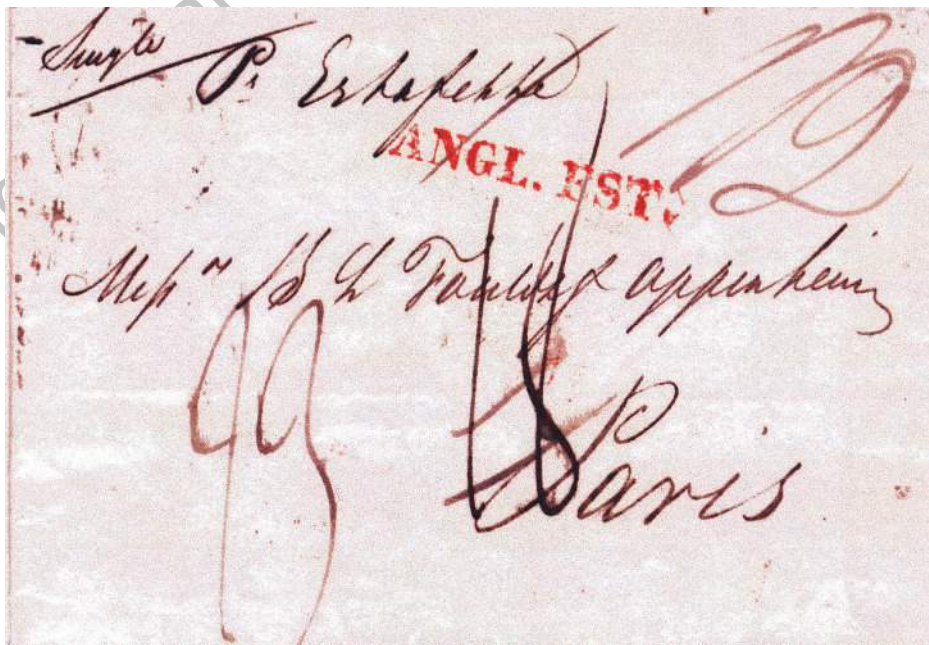 Single
Pr Estafette
ANGL. EST.
Messrs B L Fould & Oppenheim
18
Paris